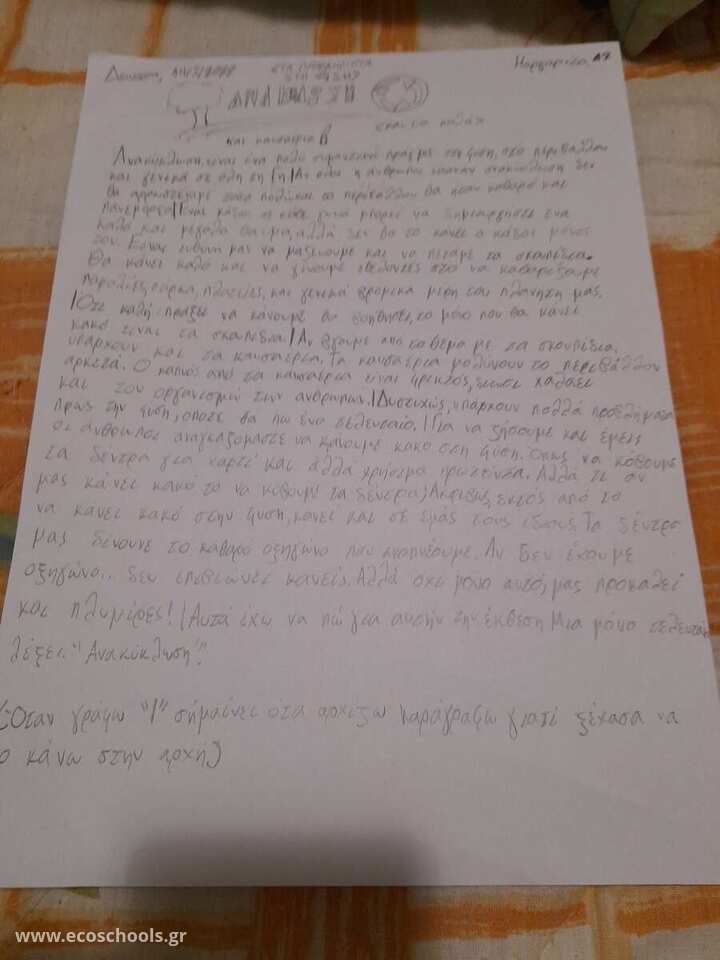 Δευτέρα, 14/3/2022 ΣΤΑ ΠΡΟΒΛΗΜΑΤΑ Μαργαρίτα,
ΣΤΗ ΦΥΣΗ
και καυσαέρια
Ανακύκλωση, είναι ένα πολύ σημαντικό πράγμα στη φύση, στο περιβάλλον
και γενικά σε όλη τη γη| Αν όλοι η άνθρωποι έκαναν ανακύκλωση δεν
θα πολλά και το περιβάλλον θα ήταν καθαρό και
πανέμορφο| Ένας κάδος σε κάθε γωνιά μπορεί να δημιουργήσει ένα
καλό και μεγάλο θαύμα, αλλά δεν θα το κάνει ο κάδος μόνος
του. Είναι ευθύνη μας να μαζεύουμε και να πετάμε τα σκουπίδια.
Θα κάνει καλό και να γίνουμε εθελοντές στο να καθαρίζουμε
παραλίες, πάρκα, πλατείες, και γενικά βρόμικα μέρη του πλανήτη μας.
|Ότι καλή πράξει να κάνουμε θα βοηθήσει, το μόνο που θα κάνει
κακό είναι τα σκουπίδια| Αν βγούμε από το θέμα με τα σκουπίδια,
υπάρχουν και τα καυσαέρια. Τα καυσαέρια μολύνουν το περιβάλλον
αρκετά. Ο καπνός από τα καυσαέρια είναι φρικτός, διότι χαλάει
και τον οργανισμό των ανθρώπων.| Δυστυχώς, υπάρχουν πολλά προβλήματα
προς την φύση, οπότε θα πω ένα τελευταίο. |Για να ζήσουμε και εμείς
οι άνθρωποι αναγκαζόμαστε να κάνουμε κακό στη φύση. όπως να κόβουμε
τα δέντρα για χαρτί και άλλα χρήσιμα Αλλά τι αν
μας κάνει κακό το να κόβουμε τα δέντρα; Ακριβώς, εκτός από το
να κάνει κακό στην φύση, κάνει και σε εμάς τους ίδιους. Τα δέντρα
μας δίνουνε το καθαρό οξηγώνο που αναπνέουμε. Αν δεν έχουμε
οξηγώνο.. δεν επιβιώνει κανείς. Αλλά όχι μόνο αυτό, μας προκαλεί
και πλυμίρες! |Αυτά έχω να πώ για αυτήν την έκθεση Μια μόνο τελευταία
λέξει "Ανακύκλωση".
(Όταν γράφω "|" σημαίνει ότι αρχίζω παράγραφω γιατί ξέχασα να
ο κάνω στην αρχή)
www.ecoschools.gr